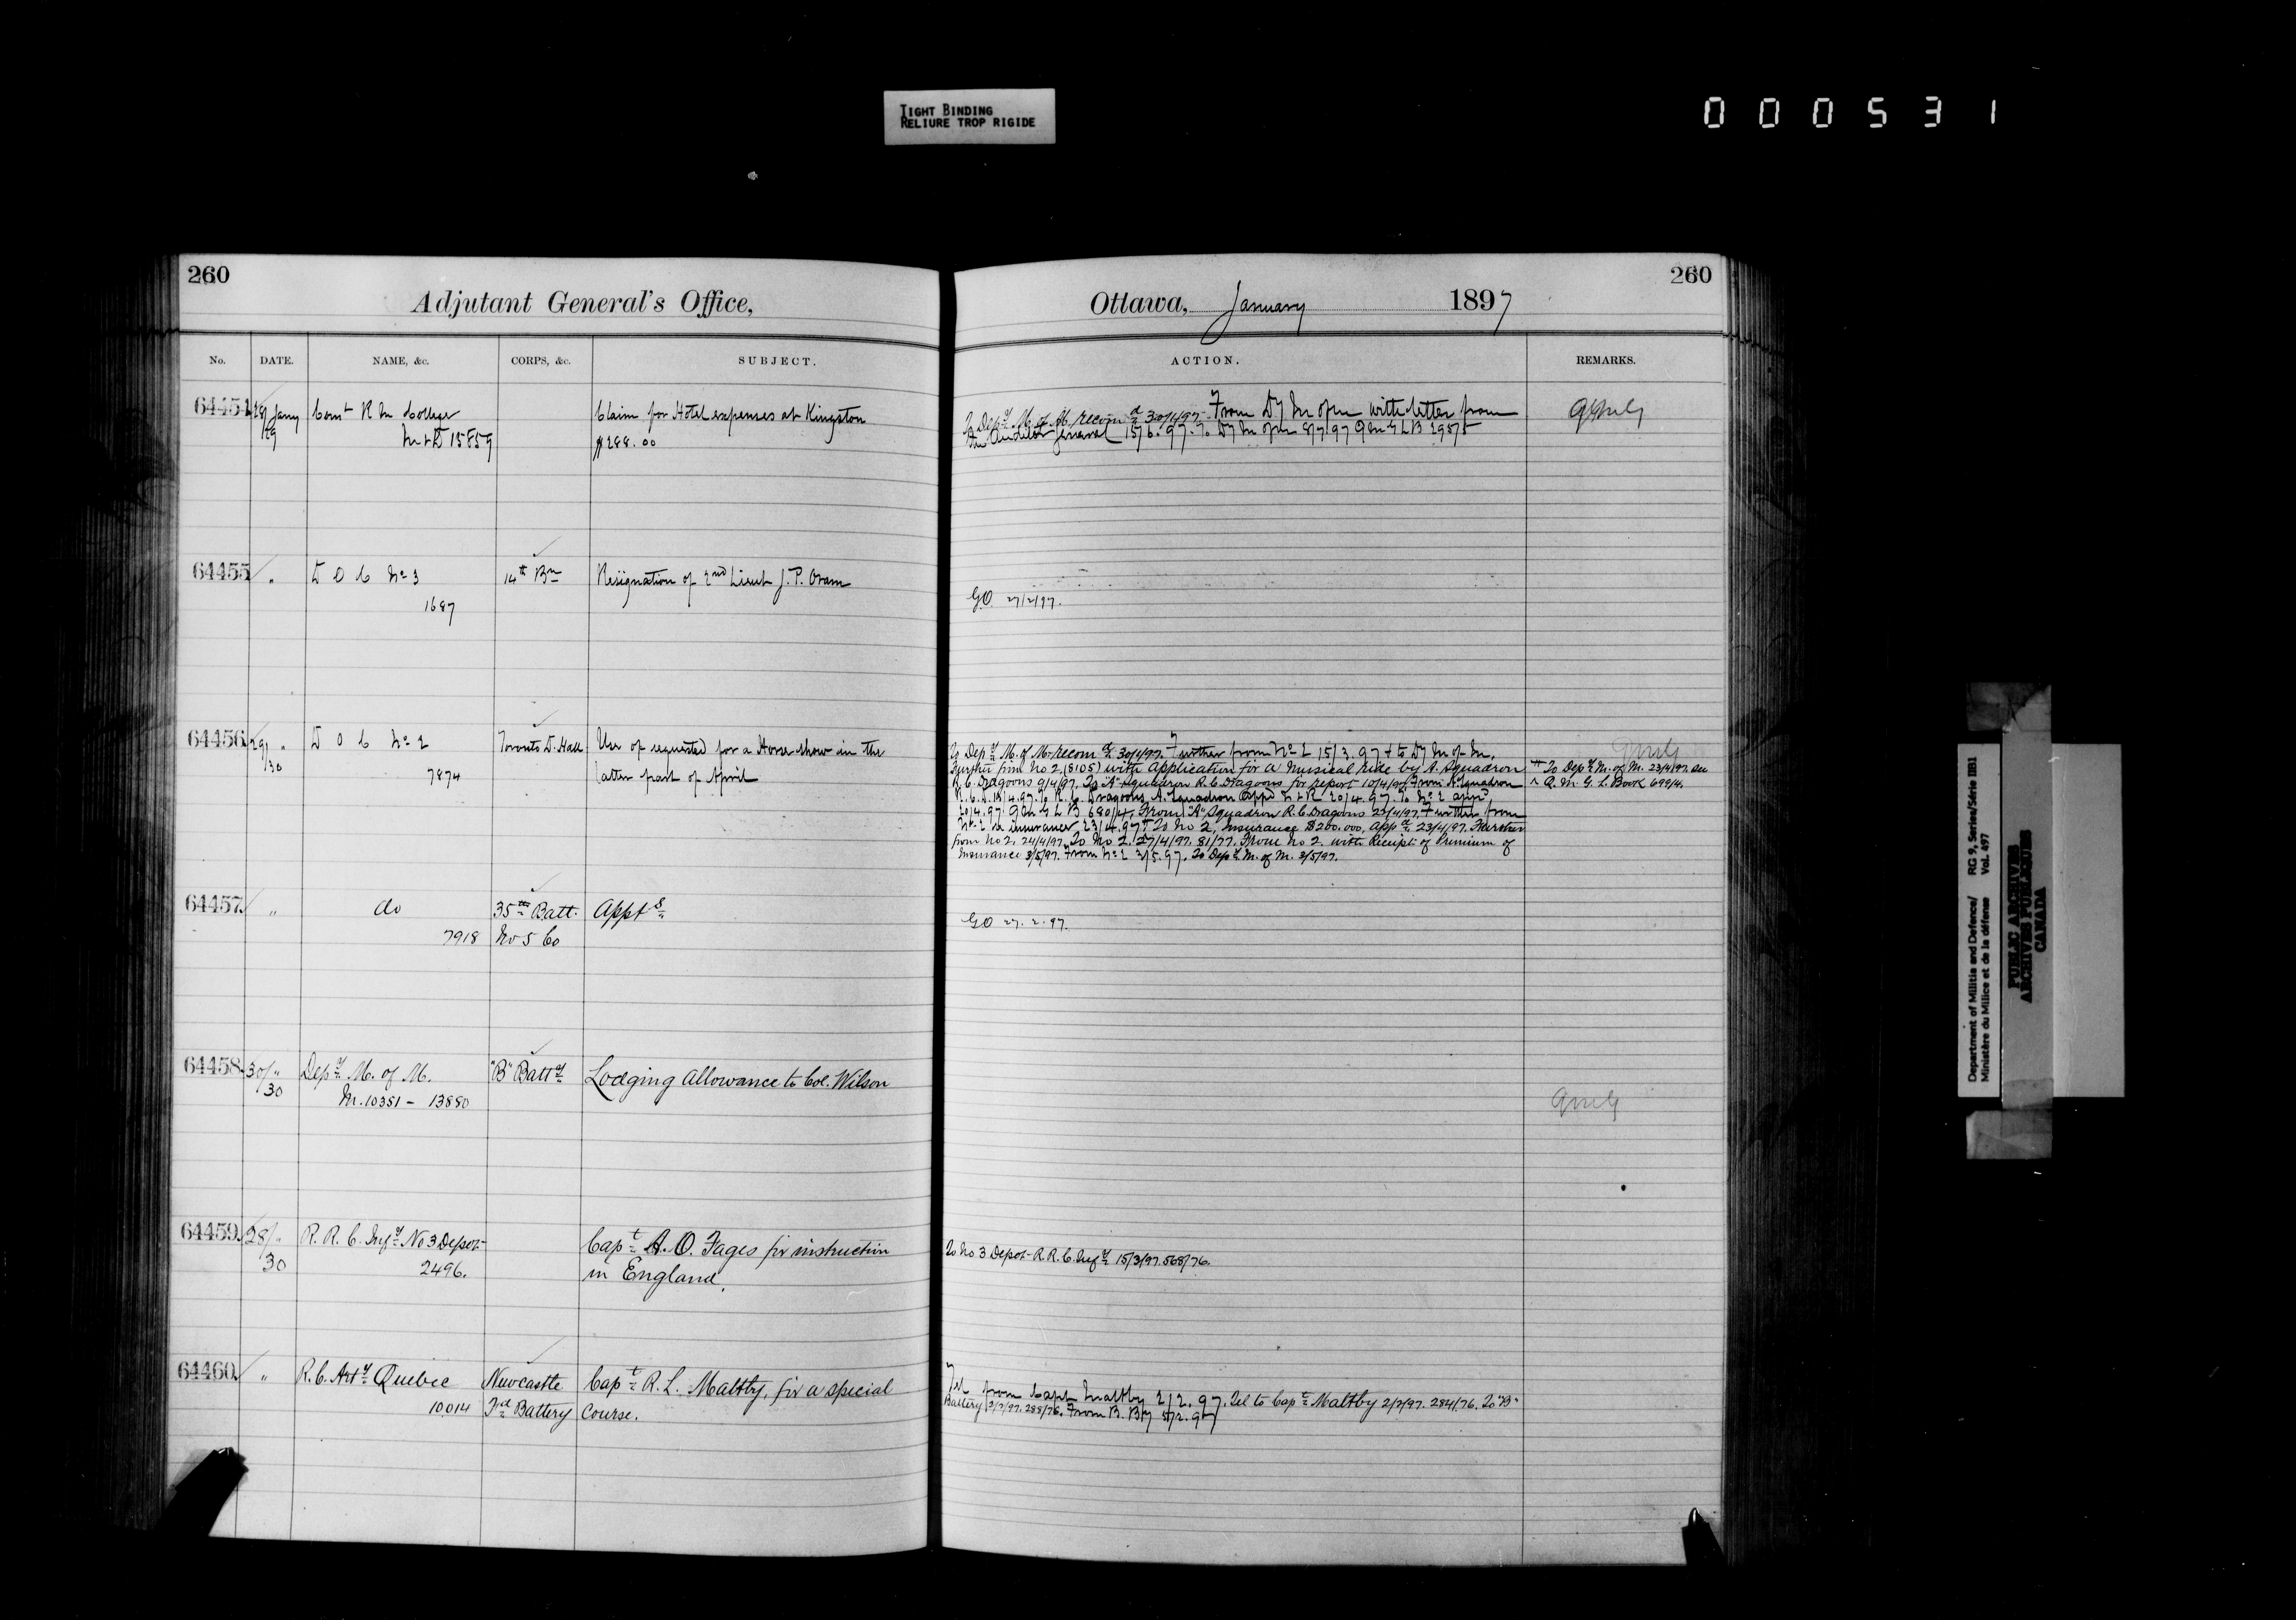 TIGHT BINDING
RELIURE TROP RIGIDE
000531
260
Adjutant General's Office,
No. DATE. NAME, &c. CORPS, &c. SUBJECT.
64454 28/ Jany Comt R M College Claim for Hotel expenses at Kingston
29 M & D 15859 $288.00
64455 " D O C No 3 14th Bn Resignation of 2nd Lieut J. P. Oram
1687
64456 29/ " D O C No 2 Toronto D. Hall Use of requested for a Horse show in the
30 7874 latter part of April
64457 " do 35th Batt. Appts
7918 No 5 Co
64458 30/ " Depy M. of M. "B" Batty Lodging Allowance to Col. Wilson
30 M. 10351 - 13880
64459 28/ " R. R. C. Infy No 3 Depot Capt A. O. Fages for instruction
30 2496. in England.
64460 " R. C. Arty Quebec Newcastle Capt R. L. Maltby, for a special
10014 Battery Course.
260
Ottawa, January 1897
ACTION. REMARKS.
To Depy M. of M. recomd 30/1/97. From Dy M of M with letter from QMG
the Auditor General 15/6.97. To Dy M of M 8/7/97 QMG LB 295/5
G.O. 27/2/97.
To Depy M. of M. recomd 30/1/97. Further from No 2 15/3.97 & to Dy M of M. QMG
Further from No 2. (8105) with Application for a Musical Ride by A. Squadron
R. C. Dragoons 9/4/97. To "A" Squadron R. C. Dragoons for report 10/4/97. From A Squadron
R. C. D. /4.97. To R. C. Dragoons A. Squadron appd 20/4.97. To No 2 appd
20/4.97. QMG LB 680/4. From "A" Squadron R. C. Dragoons 23/4/97. Further from
No 2 re insurance 23/4.97. To No 2, Insurance $200.000, appd 23/4/97. Further
from No 2. 24/4/97. To No 2. 27/4/97. 81/77. From No 2. with Receipt of Premium of
Insurance 3/5/97. From No 2 3/5.97. To Depy M. of M. 3/5/97.
To Depy M. of M. 23/4/97. See
Q. M. G. L. Book 699/4.
GO 27.2.97.
QMG
To No 3 Depot R. R. C. Infy 15/3/97. 568/76.
Tel from Capt Maltby 2/2.97. Tel to Capt Maltby 2/2/97. 284/76. To "B"
Battery 2/2/97. 288/76. From B. Bty 5/2.97
Department of Militia and Defence/ RG 9, Series/Série IIB1
Ministère du Milice et de la défense Vol. 497
PUBLIC ARCHIVES
ARCHIVES PUBLIQUES
CANADA